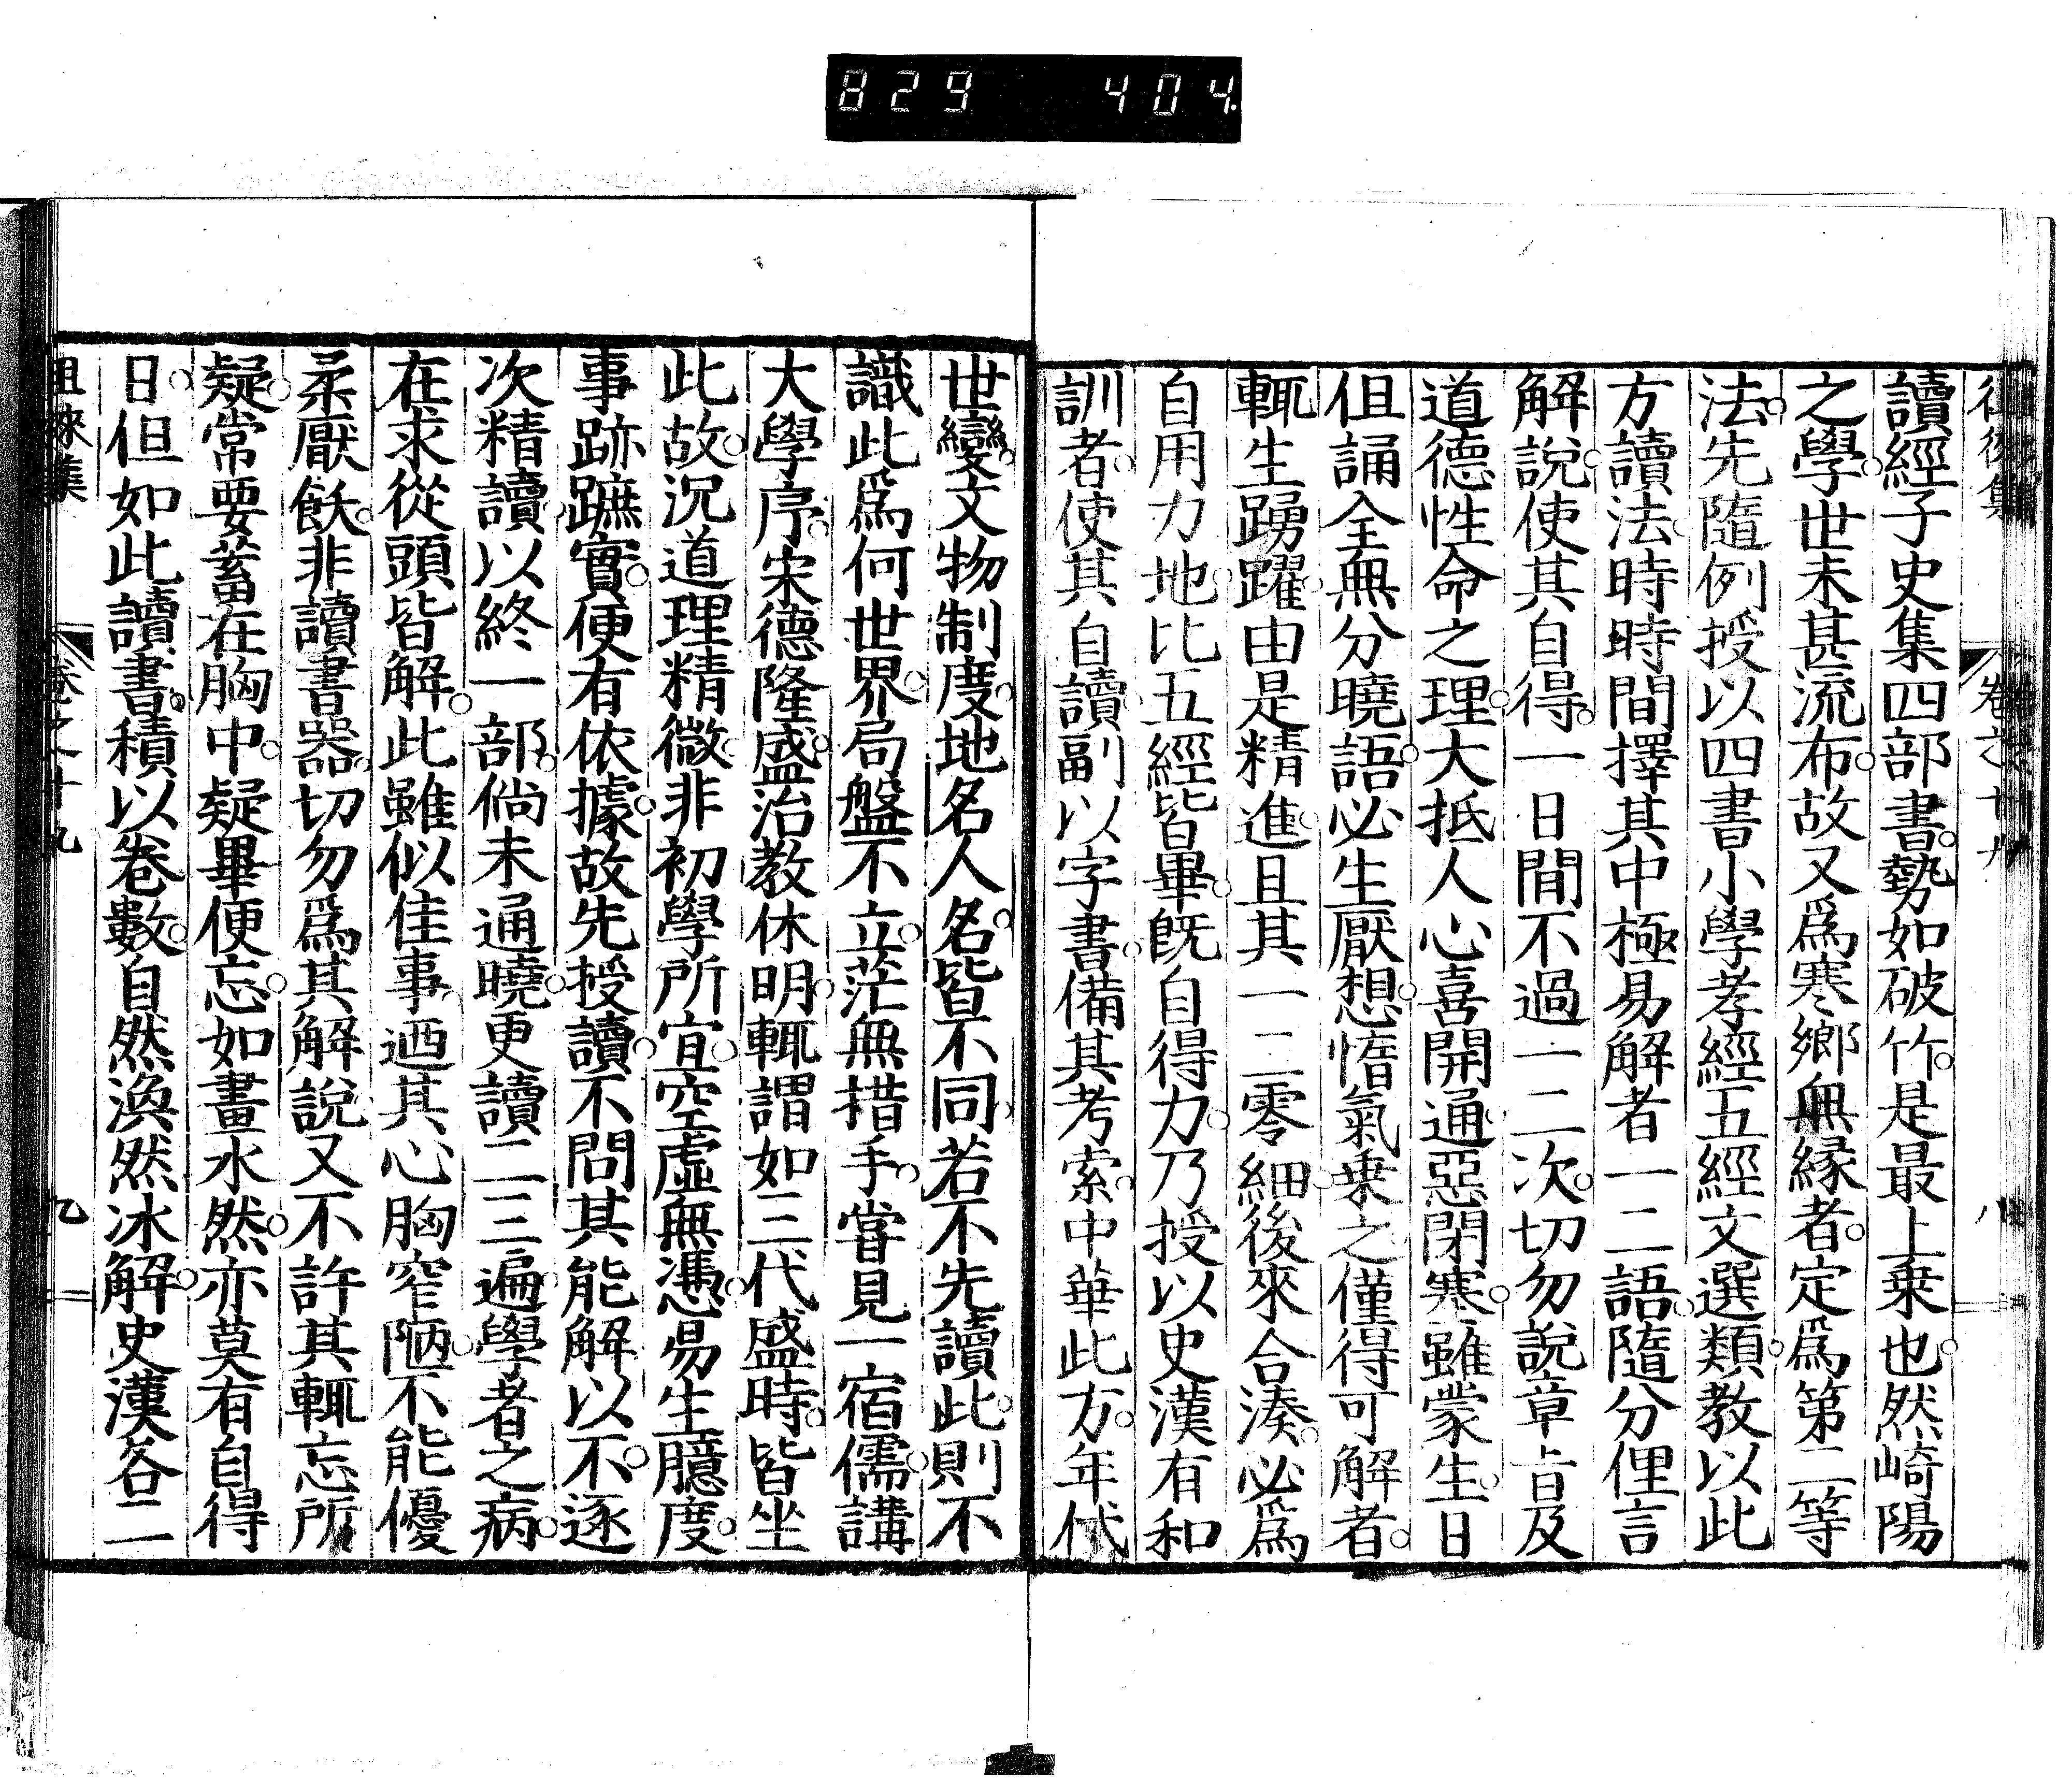 829 404
讀經子史集四部書。勢如破竹。是最上乗也。然崎陽
之學。世未甚流布。故又爲寒鄉無緣者。定爲第二等
法。先隨例授以四書小學孝經五經文選類。教以此
方讀法。時時間擇其中極易解者一二語。隨分俚言
解說。使其自得。一日間不過一二次。切勿說章旨及
道德性命之理。大抵人心喜開通。惡閉寒。雖蒙生。日
但誦全無分曉語。必生厭想。惰氣乗之。僅得可解者。
輒生踴躍。由是精進。且其一二零細。後來合湊。必爲
自用力地。比五經皆畢。旣自得力。乃授以史漢有和
訓者。使其自讀。副以字書。備其考索。中華此方。年代
世變。文物制度。地名人名。皆不同。若不先讀此。則不
識此爲何世界。局盤不立。茫無措手。嘗見一宿儒。講
大學序。宋德隆盛。治教休明。輒謂如三代盛時。皆坐
此故。況道理精微。非初學所宜。空虛無憑。易生臆度。
事跡蹠實。便有依據。故先授讀。不問其能解以不。逐
次精讀。以終一部。倘未通曉。更讀二三遍。學者之病。
在求從頭皆解。此雖似佳事。迺其心胸窄陋。不能優
柔厭飫。非讀書器。切勿爲其解說。又不許其輒忘所
疑。常要蓄在胸中。疑畢便忘。如畫水然。亦莫有自得
日。但如此讀書。積以卷數。自然渙然冰解。史漢各二
徂徠集 卷之十九 九